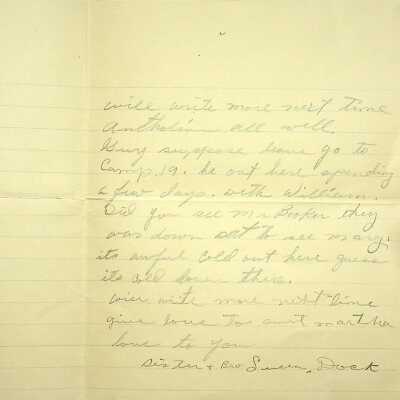 will write more next time
all well.
Guy suppose leave go to
Camp. 19. he out here spending
a few days. with William.
Did you see Mr Booker they
was down to see mary.
its awful cold out here guess
its cold down there.
will write more next time
give love to aunt martha
love to you
Sister & Bro Susan, Dock